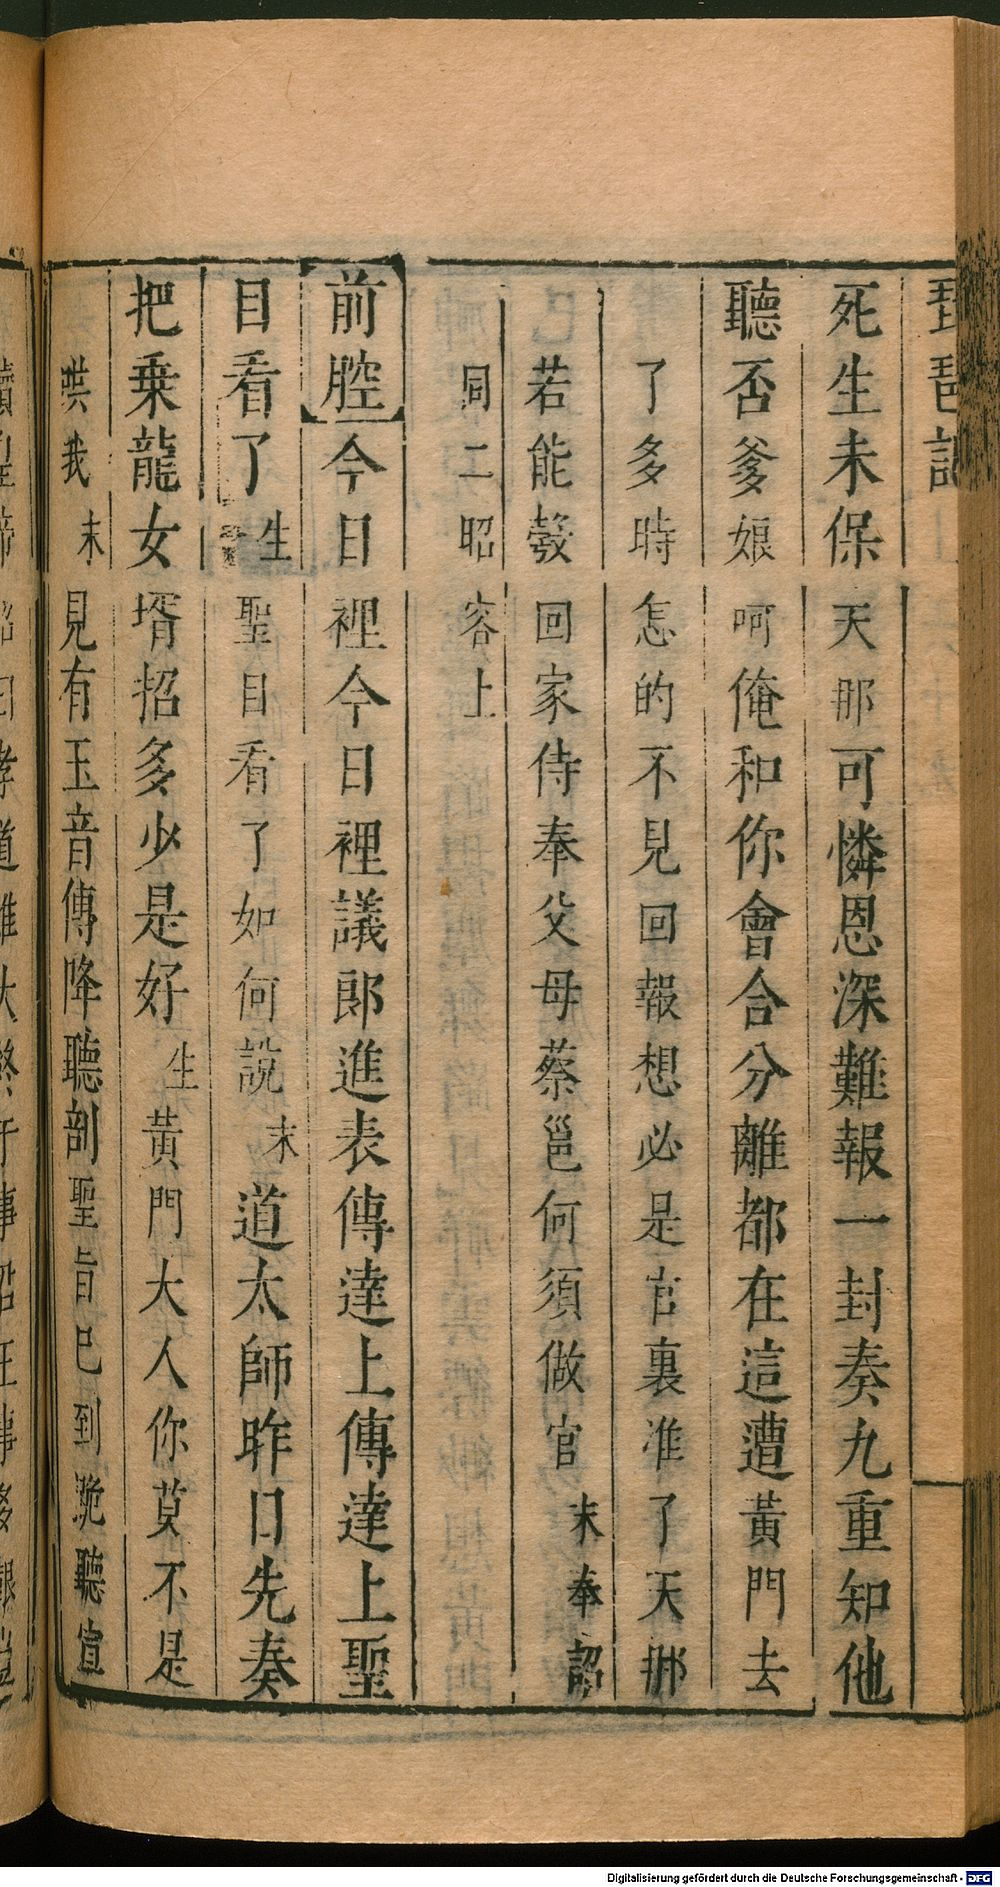 琵琶記
死生未保天那可憐恩深難報一封奏九重知他
聽否爹娘呵俺和你會合分離都在這遭黃門去
了多時怎的不見回報想必是官裏准了天那
若能彀回家侍奉父母蔡邕何須做官末奉詔
同二昭容上
前腔今日裡今日裡議郎進表傳達上傳達上聖
目看了生聖目看了如何說末道太師昨日先奏
把乗龍女壻招多少是好生黃門大人你莫不是
哄我末見有玉音傳降聽剖聖旨已到跪聽宣
Digitalisierung gefördert durch die Deutsche Forschungsgemeinschaft - DFG